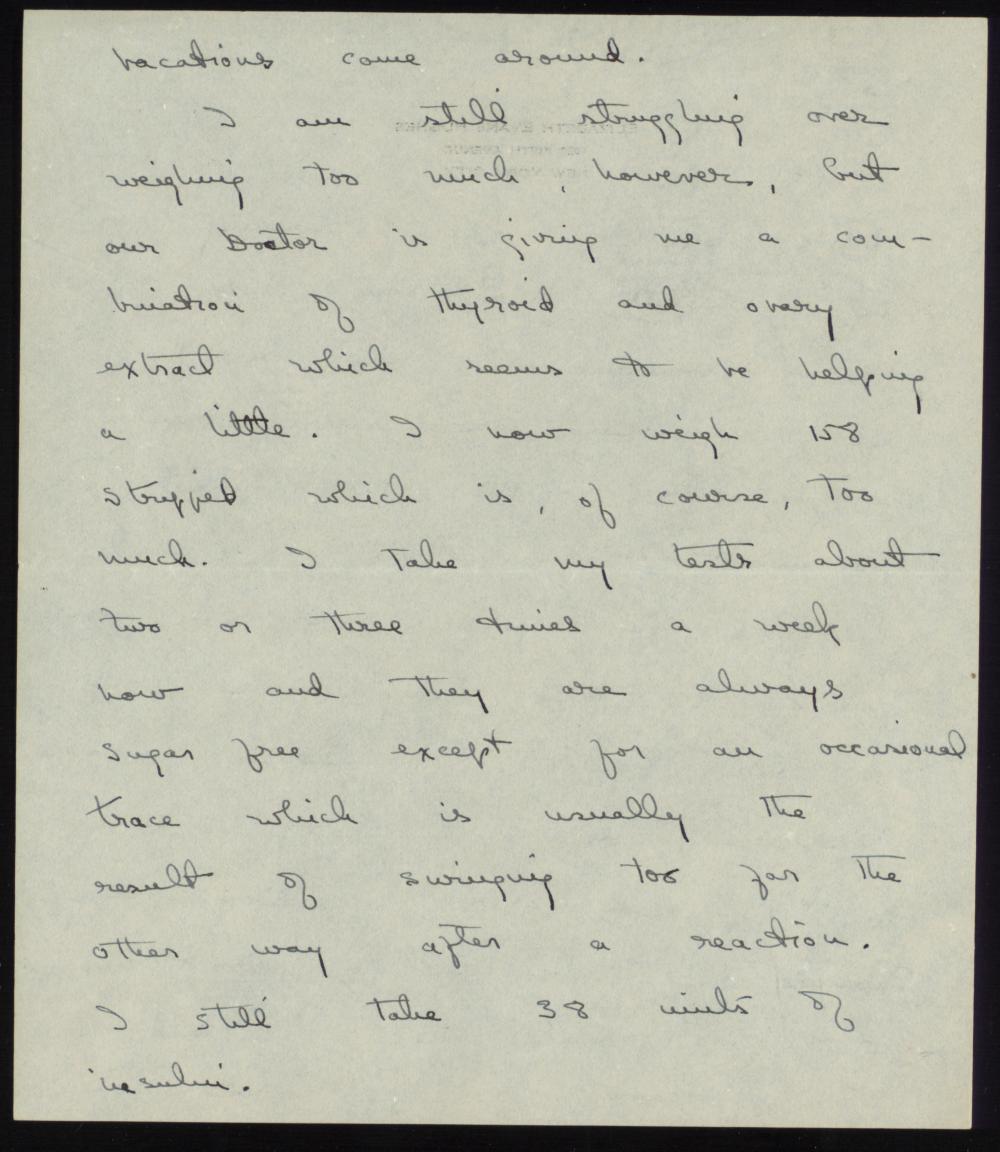 vacations come around.
I am still struggling over
weighing too much, however, but
our Doctor is giving me a com-
bination of thyroid and ovary
extract which seems to be helping
a little. I now weigh 158
stripped which is, of course, too
much. I take my tests about
two or three times a week
now and they are always
sugar free except for an occasional
trace which is usually the
result of swinging too far the
other way after a reaction.
I still take 38 units of
insulin.